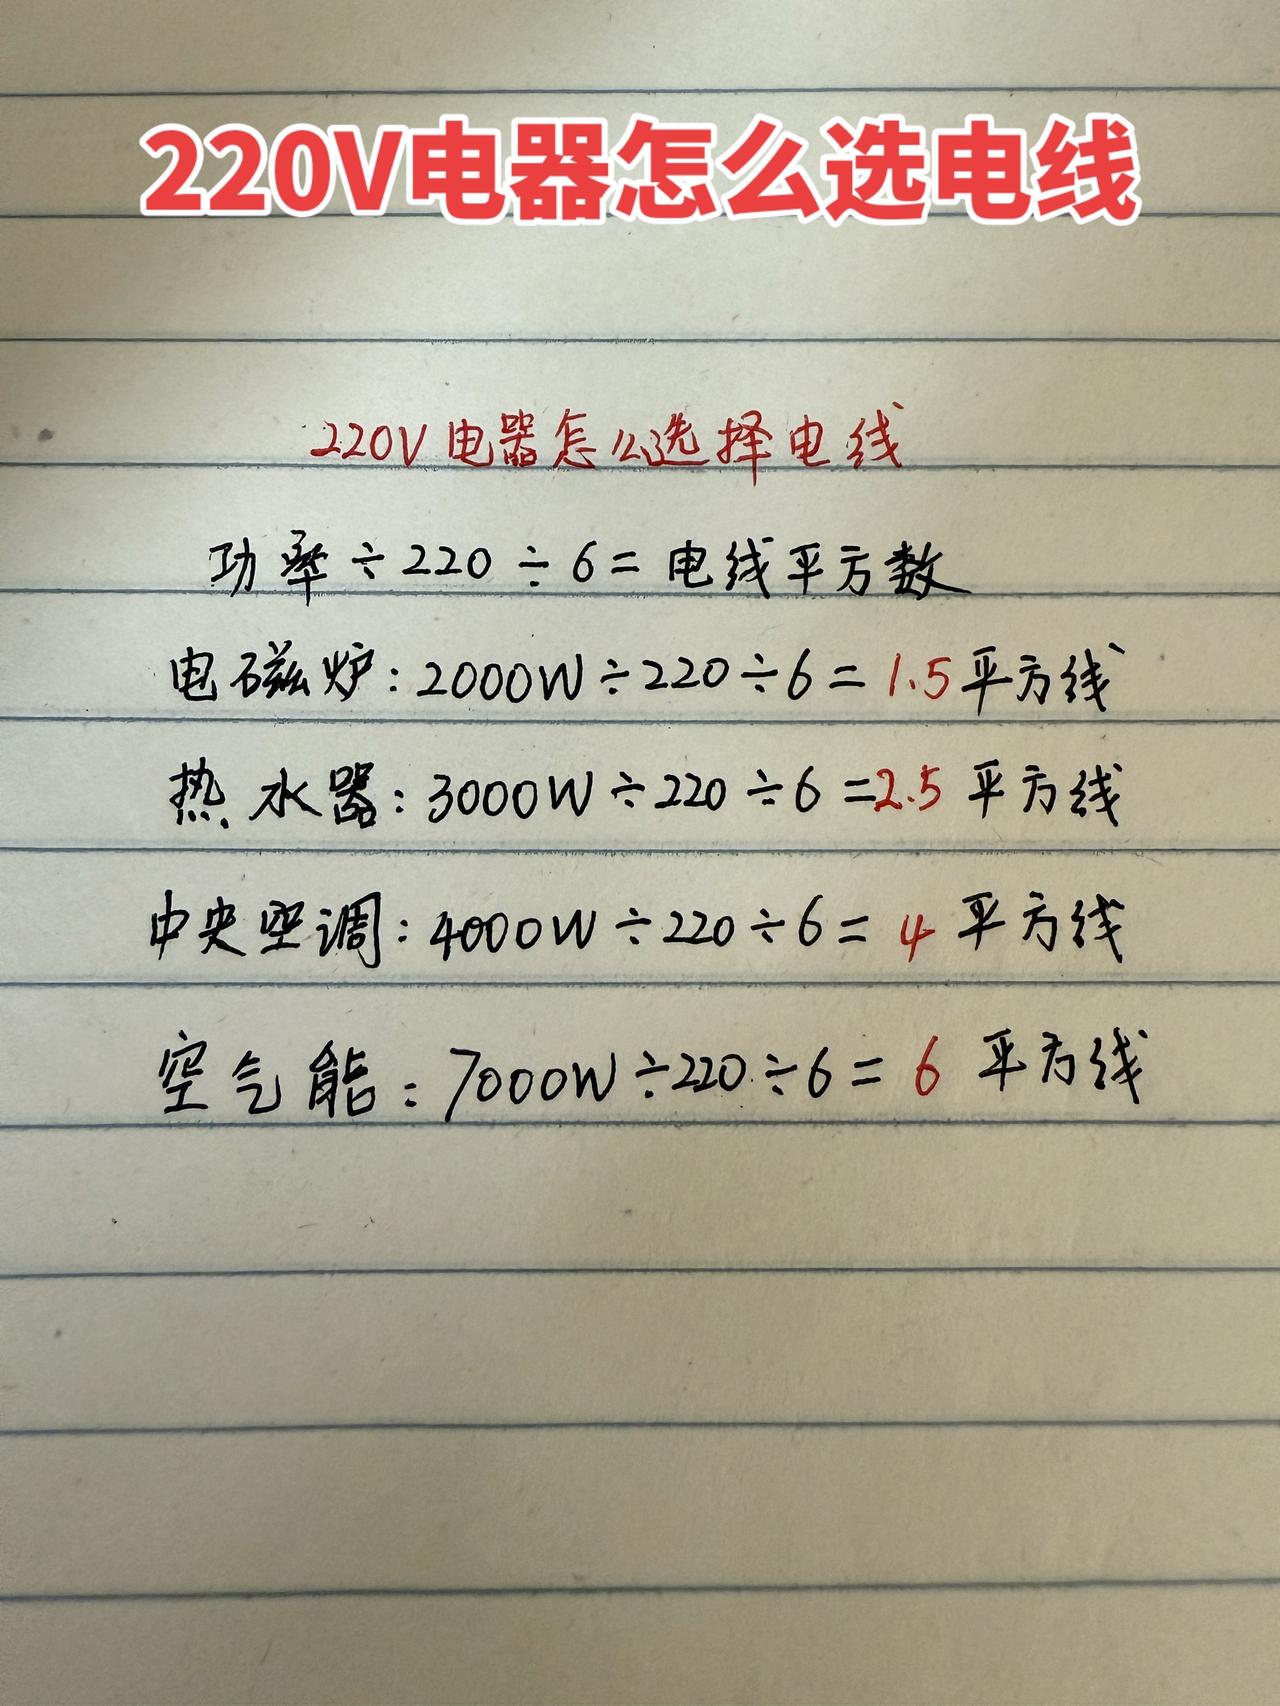 220V电器怎么选电线
220V电器怎么选择电线
功率÷220÷6=电线平方数
电磁炉:2000W÷220÷6=1.5平方线
热水器:3000W÷220÷6=2.5平方线
中央空调:4000W÷220÷6=4平方线
空气能:7000W÷220÷6=6平方线